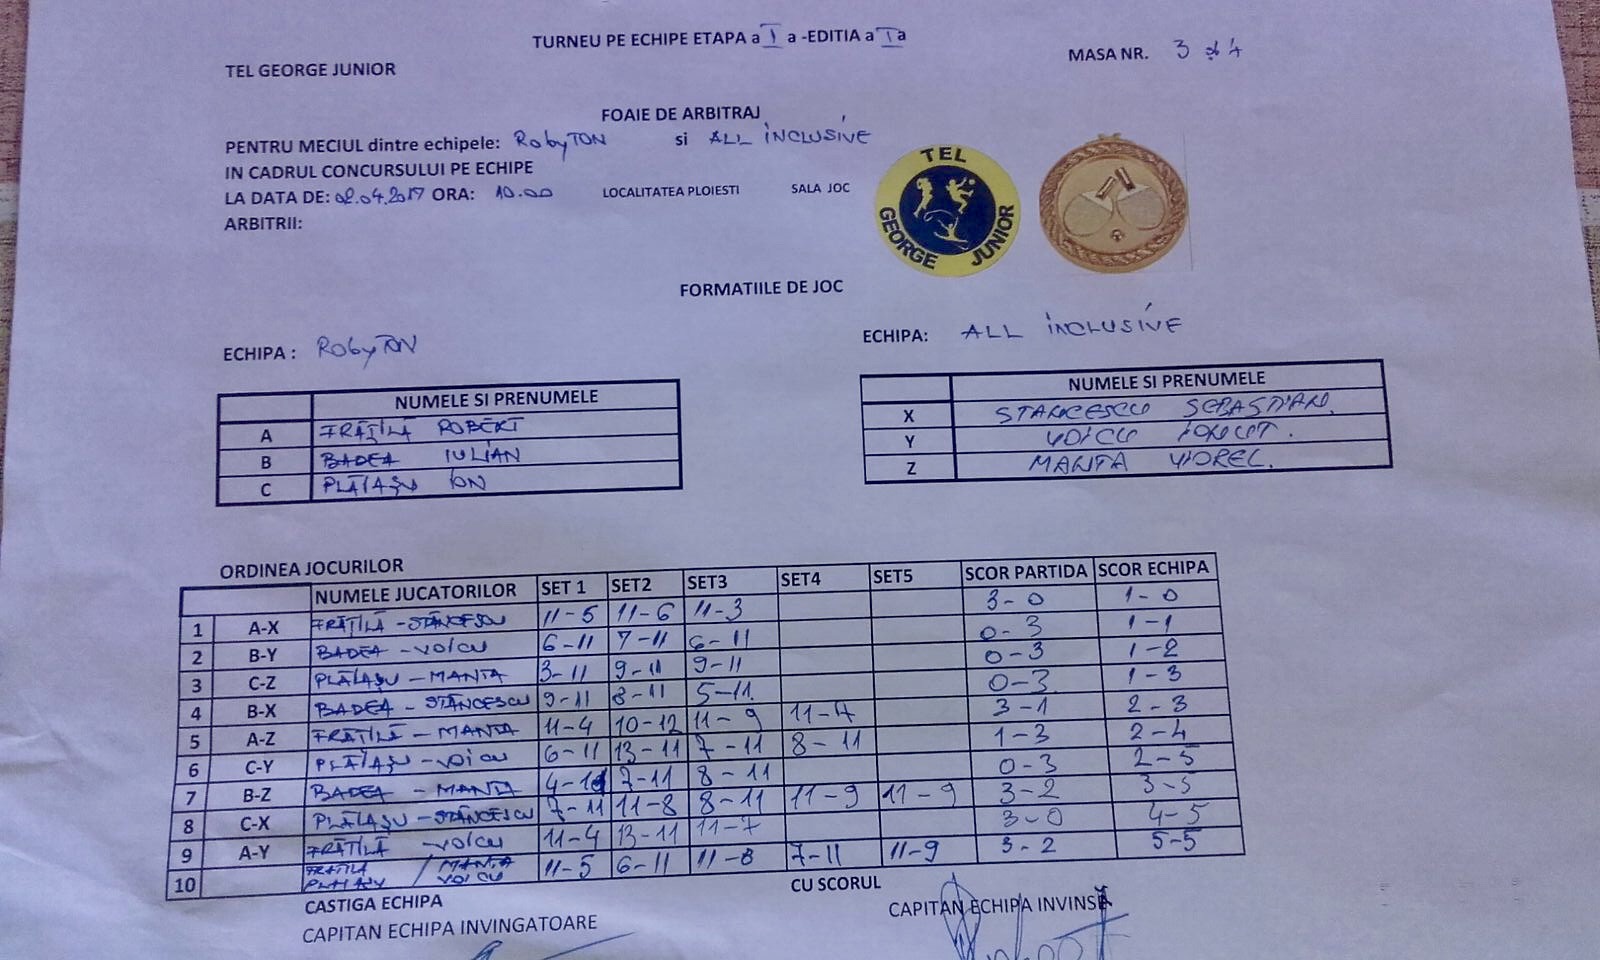 TURNEU PE ECHIPE ETAPA a I a -EDITIA a I a
MASA NR. 3 și 4
TEL GEORGE JUNIOR
FOAIE DE ARBITRAJ
PENTRU MECIUL dintre echipele: RobyTON si ALL iNCLUSiVE
IN CADRUL CONCURSULUI PE ECHIPE
LA DATA DE: 02.04.2017 ORA: 10.00 LOCALITATEA PLOIESTI SALA JOC
ARBITRII:
TEL GEORGE JUNIOR
FORMATIILE DE JOC
ECHIPA : RobyTON
ECHIPA: ALL iNCLUSiVE
NUMELE SI PRENUMELE
A FRĂȚILĂ ROBERT
B BADEA IULIAN
C PLĂIAȘU ION
NUMELE SI PRENUMELE
X STANCESCU SEBASTIAN.
Y VOICU IONUT.
Z MANTA VIOREL.
ORDINEA JOCURILOR
NUMELE JUCATORILOR SET 1 SET2 SET3 SET4 SET5 SCOR PARTIDA SCOR ECHIPA
1 A-X FRĂȚILĂ - STĂNCESCU 11-5 11-6 11-3 3-0 1-0
2 B-Y BADEA - VOICU 6-11 7-11 6-11 0-3 1-1
3 C-Z PLĂIAȘU - MANTA 3-11 9-11 9-11 0-3 1-2
4 B-X BADEA - STĂNCESCU 9-11 8-11 5-11. 0-3 1-3
5 A-Z FRĂȚILĂ - MANTA 11-4 10-12 11-9 11-4 3-1 2-3
6 C-Y PLĂIAȘU - VOICU 6-11 13-11 7-11 8-11 1-3 2-4
7 B-Z BADEA - MANTA 4-11 7-11 8-11 0-3 2-5
8 C-X PLĂIAȘU - STĂNCESCU 7-11 11-8 8-11 11-9 11-9 3-2 3-5
9 A-Y FRĂȚILĂ - VOICU 11-4 13-11 11-7 3-0 4-5
10 FRĂȚILĂ PLĂIAȘU / MANTA VOICU 11-5 6-11 11-8 7-11 11-9 3-2 5-5
CASTIGA ECHIPA CU SCORUL
CAPITAN ECHIPA INVINGATOARE CAPITAN ECHIPA INVINSĂ